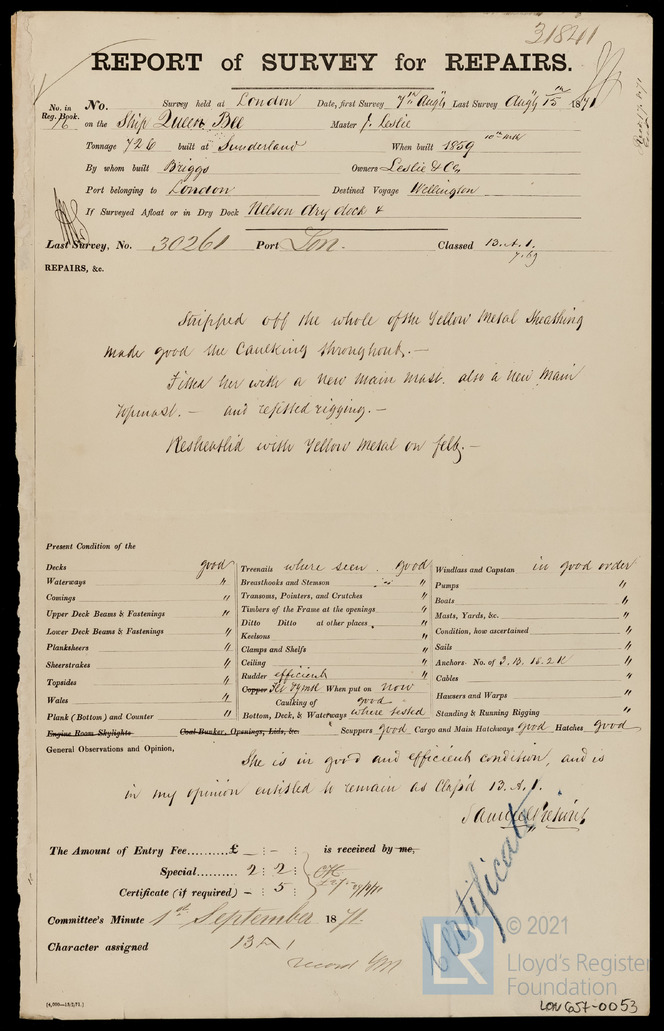 31841
REPORT of SURVEY for REPAIRS.
No. in Reg. Book. 76 No. Survey held at London Date, first Survey 7th Augt Last Survey Augt 15th 1871
on the Ship Queen Bee Master J. Leslie
Tonnage 726 built at Sunderland When built 1859 10th Mth
By whom built Briggs Owners Leslie & Co
Port belonging to London Destined Voyage Wellington
If Surveyed Afloat or in Dry Dock Nelson dry dock &
Last Survey, No. 30261 Port Lon. Classed 13.A.1.
7.69
REPAIRS, &c.
Stripped off the whole of the Yellow Metal Sheathing
made good the Caulking throughout.—
Fitted her with a new Main Mast. also a new Main
topmast.— and refitted rigging.—
Resheathed with Yellow Metal on felt.—
Present Condition of the
Decks good Treenails where seen. good Windlass and Capstan in good order
Waterways " Breasthooks and Stemson " Pumps "
Comings " Transoms, Pointers, and Crutches " Boats "
Upper Deck Beams & Fastenings " Timbers of the Frame at the openings " Masts, Yards, &c. "
Lower Deck Beams & Fastenings " Ditto Ditto at other places " Condition, how ascertained "
Planksheers " Keelsons " Sails "
Sheerstrakes " Clamps and Shelfs " Anchors No. of 3.B. 1S. 2K "
Topsides " Ceiling " Cables "
Wales " Rudder efficient Hawsers and Warps "
Plank (Bottom) and Counter " Copper When put on now Standing & Running Rigging "
Caulking of good
Bottom, Deck, & Waterways where tested
Engine Room Skylights Coal Bunker, Openings, Lids, &c. Scuppers good Cargo and Main Hatchways good Hatches good
General Observations and Opinion,
She is in good and efficient condition, and is
in my opinion entitled to remain as Class'd 13.A.1.
The Amount of Entry Fee..........£ - : - is received by me,
Special.......... 2 : 2
Certificate (if required) - : 5
Certificate
Committee's Minute 1st September 1871
Character assigned 13 A 1
record
[4,000—13/2/71.]
LR © 2021
Lloyd's Register
Foundation
LON 657-0053